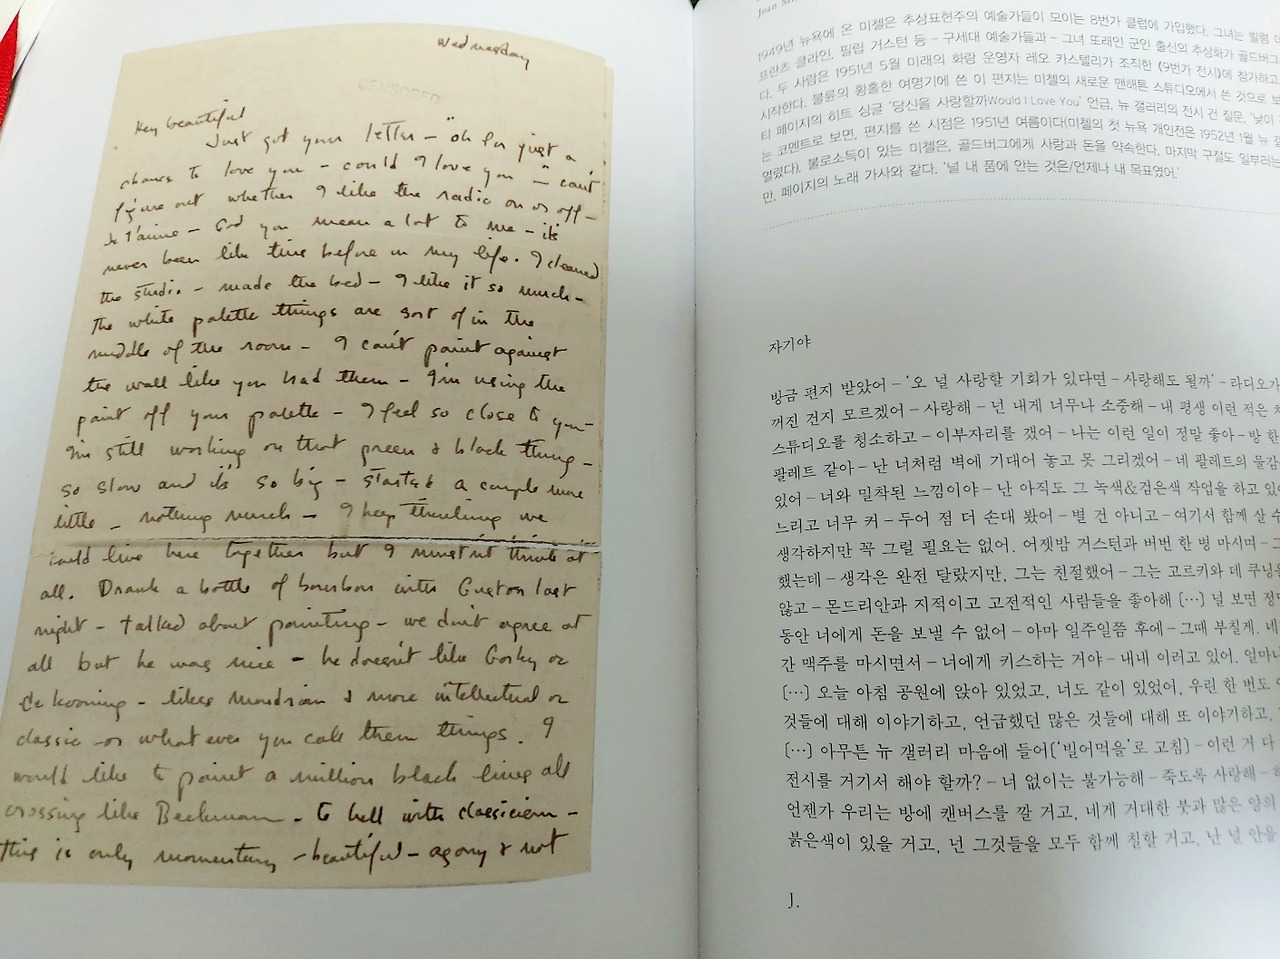 Wednesday
CENSORED
Hey beautiful
Just got your letter – "oh for just a
chance to love you – could I love you –" can't
figure out whether I like the radio on or off –
Je t'aime – God you mean a lot to me – it's
never been like this before in my life. I cleaned
the studio – made the bed – I like it so much –
the white palette things are sort of in the
middle of the room – I can't paint against
the wall like you had them – I'm using the
paint off your palette – I feel so close to you –
I'm still working on that green & black thing –
so slow and it's so big – started a couple more
little – nothing much – I keep thinking we
could live here together but I mustn't think at
all. Drank a bottle of bourbon with Guston last
night – talked about painting – we don't agree at
all but he was nice – he doesn't like Gorky or
de Kooning – likes Mondrian & more intellectual or
classic – or what ever you call them things. I
would like to paint a million black lines all
crossing like Beckmann – to hell with classicism –
this is only momentary – beautiful – agony & not
Joan
1949년 뉴욕에 온 미첼은 추상표현주의 예술가들이 모이는 8번가 클럽에 가입했다. 그녀는 빌럼
프란츠 클라인, 필립 거스턴 등 – 구세대 예술가들과 – 그녀 또래인 군인 출신의 추상화가 골드버그
다. 두 사람은 1951년 5월 미래의 화랑 운영자 레오 카스텔리가 조직한 《9번가 전시》에 참가하고
시작한다. 불륜의 황홀한 여명기에 쓴 이 편지는 미첼의 새로운 맨해튼 스튜디오에서 쓴 것으로
티 페이지의 히트 싱글 '당신을 사랑할까Would I Love You' 언급, 뉴 갤러리의 전시 건 질문, '낮이
는 코멘트로 보면, 편지를 쓴 시점은 1951년 여름이다(미첼의 첫 뉴욕 개인전은 1952년 1월 뉴
열렸다). 불로소득이 있는 미첼은, 골드버그에게 사랑과 돈을 약속한다. 마지막 구절도 일부러는
만, 페이지의 노래 가사와 같다. '널 내 품에 안는 것은/언제나 내 목표였어.'
자기야
방금 편지 받았어 – '오 널 사랑할 기회가 있다면 – 사랑해도 될까' – 라디오가
꺼진 건지 모르겠어 – 사랑해 – 넌 내게 너무나 소중해 – 내 평생 이런 적은
스튜디오를 청소하고 – 이부자리를 갰어 – 나는 이런 일이 정말 좋아 – 방 한
팔레트 같아 – 난 너처럼 벽에 기대어 놓고 못 그리겠어 – 네 팔레트의 물감
있어 – 너와 밀착된 느낌이야 – 난 아직도 그 녹색&검은색 작업을 하고
느리고 너무 커 – 두어 점 더 손대 봤어 – 별 건 아니고 – 여기서 함께 살 수
생각하지만 꼭 그럴 필요는 없어. 어젯밤 거스턴과 버번 한 병 마시며 –
했는데 – 생각은 완전 달랐지만, 그는 친절했어 – 그는 고르키와 데 쿠닝은
않고 – 몬드리안과 지적이고 고전적인 사람들을 좋아해 […] 널 보면
동안 너에게 돈을 보낼 수 없어 – 아마 일주일쯤 후에 – 그때 부칠게. 네
간 맥주를 마시면서 – 너에게 키스하는 거야 – 내내 이러고 있어. 얼마나
[…] 오늘 아침 공원에 앉아 있었고, 너도 같이 있었어, 우린 한 번도
것들에 대해 이야기하고, 언급했던 많은 것들에 대해 또 이야기하고,
[…] 아무튼 뉴 갤러리 마음에 들어('빌어먹을'로 고침) – 이런 거 다
전시를 거기서 해야 할까? – 너 없이는 불가능해 – 죽도록 사랑해 –
언젠가 우리는 방에 캔버스를 깔 거고, 네게 거대한 붓과 많은 양의
붉은색이 있을 거고, 넌 그것들을 모두 함께 칠할 거고, 난 널 안을
J.